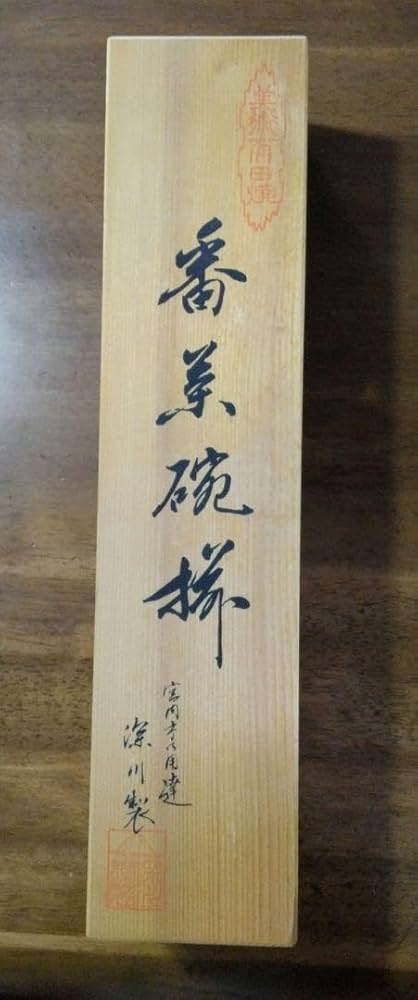 有田焼
番茶碗揃
宮内庁御用達
深川製